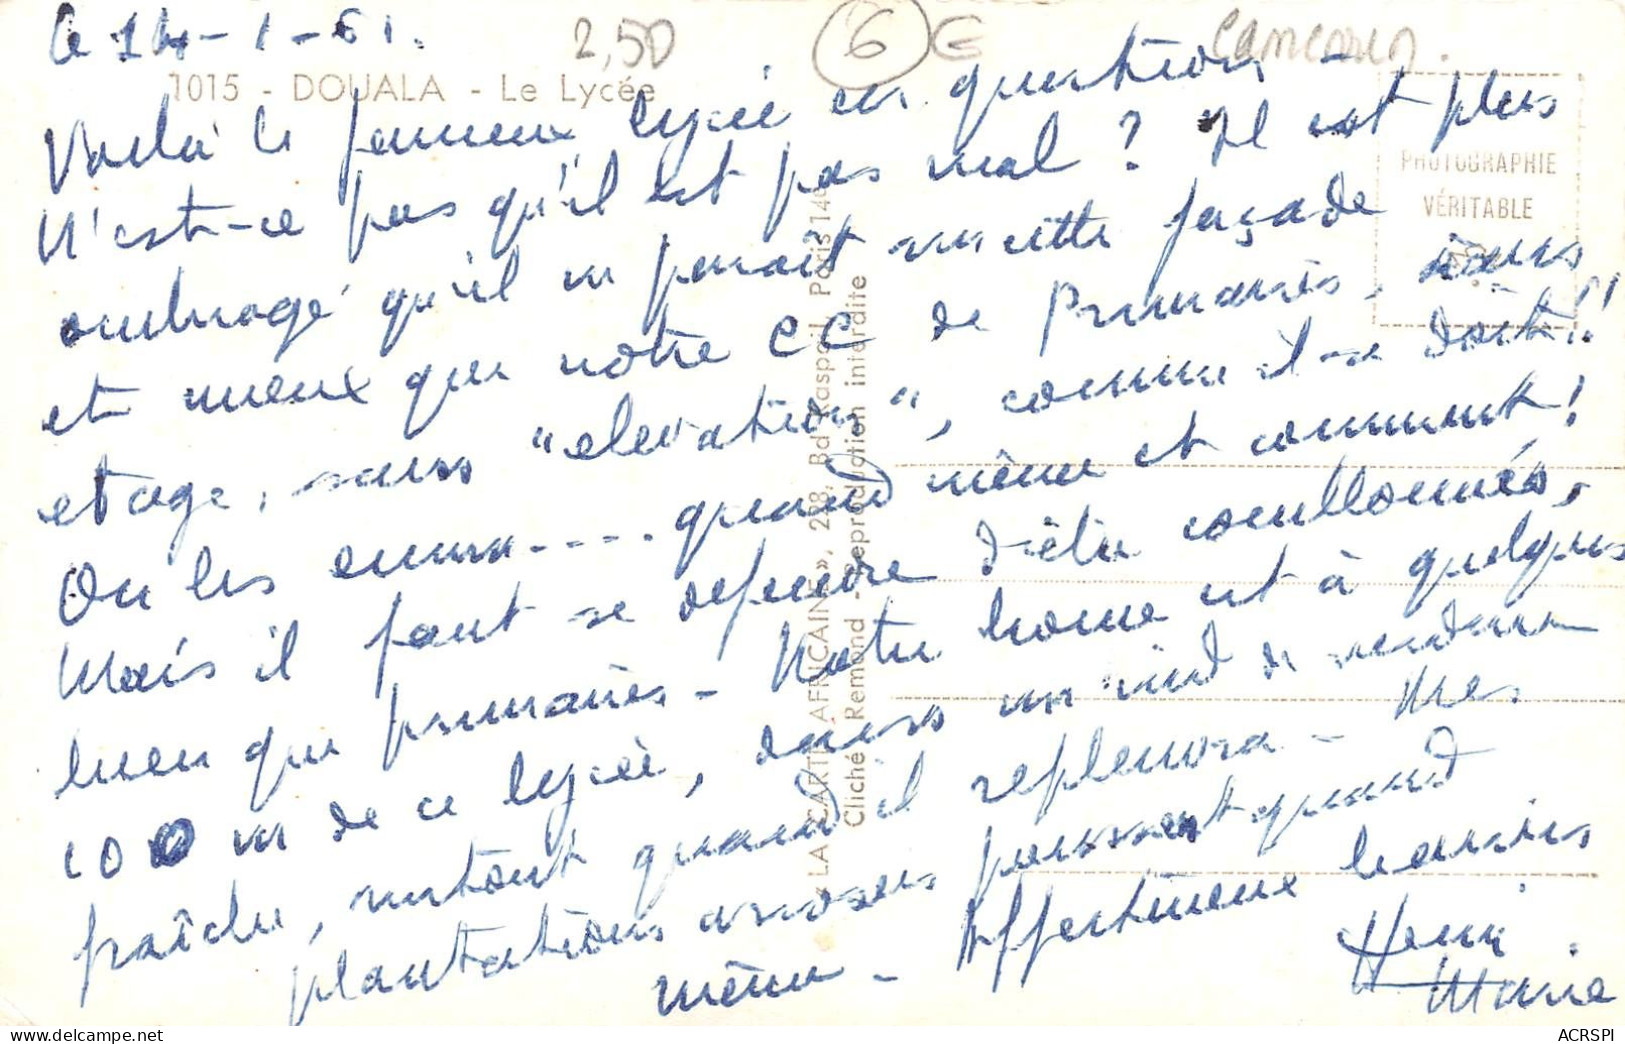 le 14-1-61.
2,50
6
€
Cameroun.
1015 - DOUALA - Le Lycée
Voilà le fameux lycée en question -
N'est-ce pas qu'il est pas mal ? Il est plus
ombragé qu'il n paraît sur cette façade
et mieux que notre CC de Primaires, sans
etage, sans "elevation", comme il se doit !!
On les emm.... quand même et comment !
Mais il faut se defendre d'être couillonnés,
bien que primaires - Notre home est à quelques
100 m de ce lycée, dans un nid de verdure
fraîche, surtout quand il repleuvra - Mes
plantations arrosées poussent quand
même - Affectueux baisers
Henri
Marie
PHOTOGRAPHIE
VÉRITABLE
« LA CARTE AFRICAINE », 218, Bd Raspail, Paris 14e
Cliché Remond - Reproduction interdite
ACRSPI